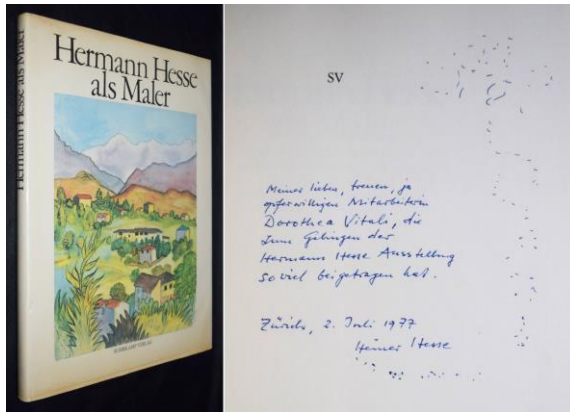 Hermann Hesse als Maler
Hermann Hesse
als Maler
SUHRKAMP VERLAG
SV
Meiner lieben, treuen, ja
opferwilligen Mitarbeiterin
Dorothea Vitali, die
zum Gelingen der
Hermann Hesse Ausstellung
soviel beigetragen hat.
Zürich, 2. Juli 1977
Heiner Hesse